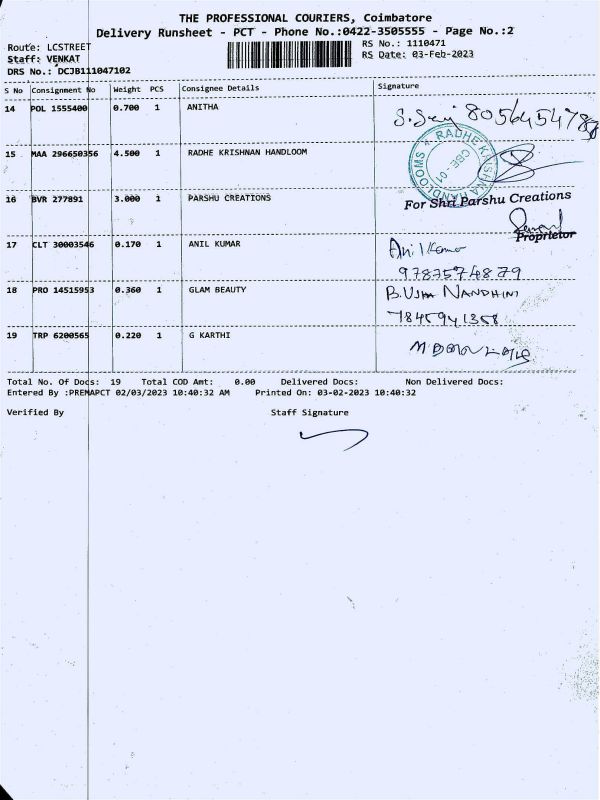 THE PROFESSIONAL COURIERS, Coimbatore
Delivery Runsheet - PCT - Phone No.:0422-3505555 - Page No.:2
Route: LCSTREET RS No.: 1110471
Staff: VENKAT RS Date: 03-Feb-2023
DRS No.: DCJB111047102
S No Consignment No Weight PCS Consignee Details Signature
14 POL 1555400 0.700 1 ANITHA
15 MAA 296650356 4.500 1 RADHE KRISHNAN HANDLOOM RADHE KRISHNA HANDLOOMS CBE - 01
16 BVR 277891 3.000 1 PARSHU CREATIONS For Shri Parshu Creations
Proprietor
17 CLT 30003546 0.170 1 ANIL KUMAR Anil Kumar
9787574879
18 PRO 14515953 0.360 1 GLAM BEAUTY B. Usha NANDHINI
7845941358
19 TRP 6200565 0.220 1 G KARTHI
Total No. Of Docs: 19 Total COD Amt: 0.00 Delivered Docs: Non Delivered Docs:
Entered By :PREMAPCT 02/03/2023 10:40:32 AM Printed On: 03-02-2023 10:40:32
Verified By Staff Signature